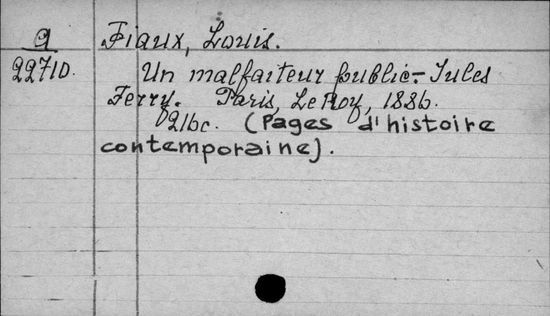 9 Fiaux, Louis.
22710. Un malfaiteur public - Jules
Ferry. Paris, Le Roy, 1886.
216c. (Pages d'histoire
contemporaine).